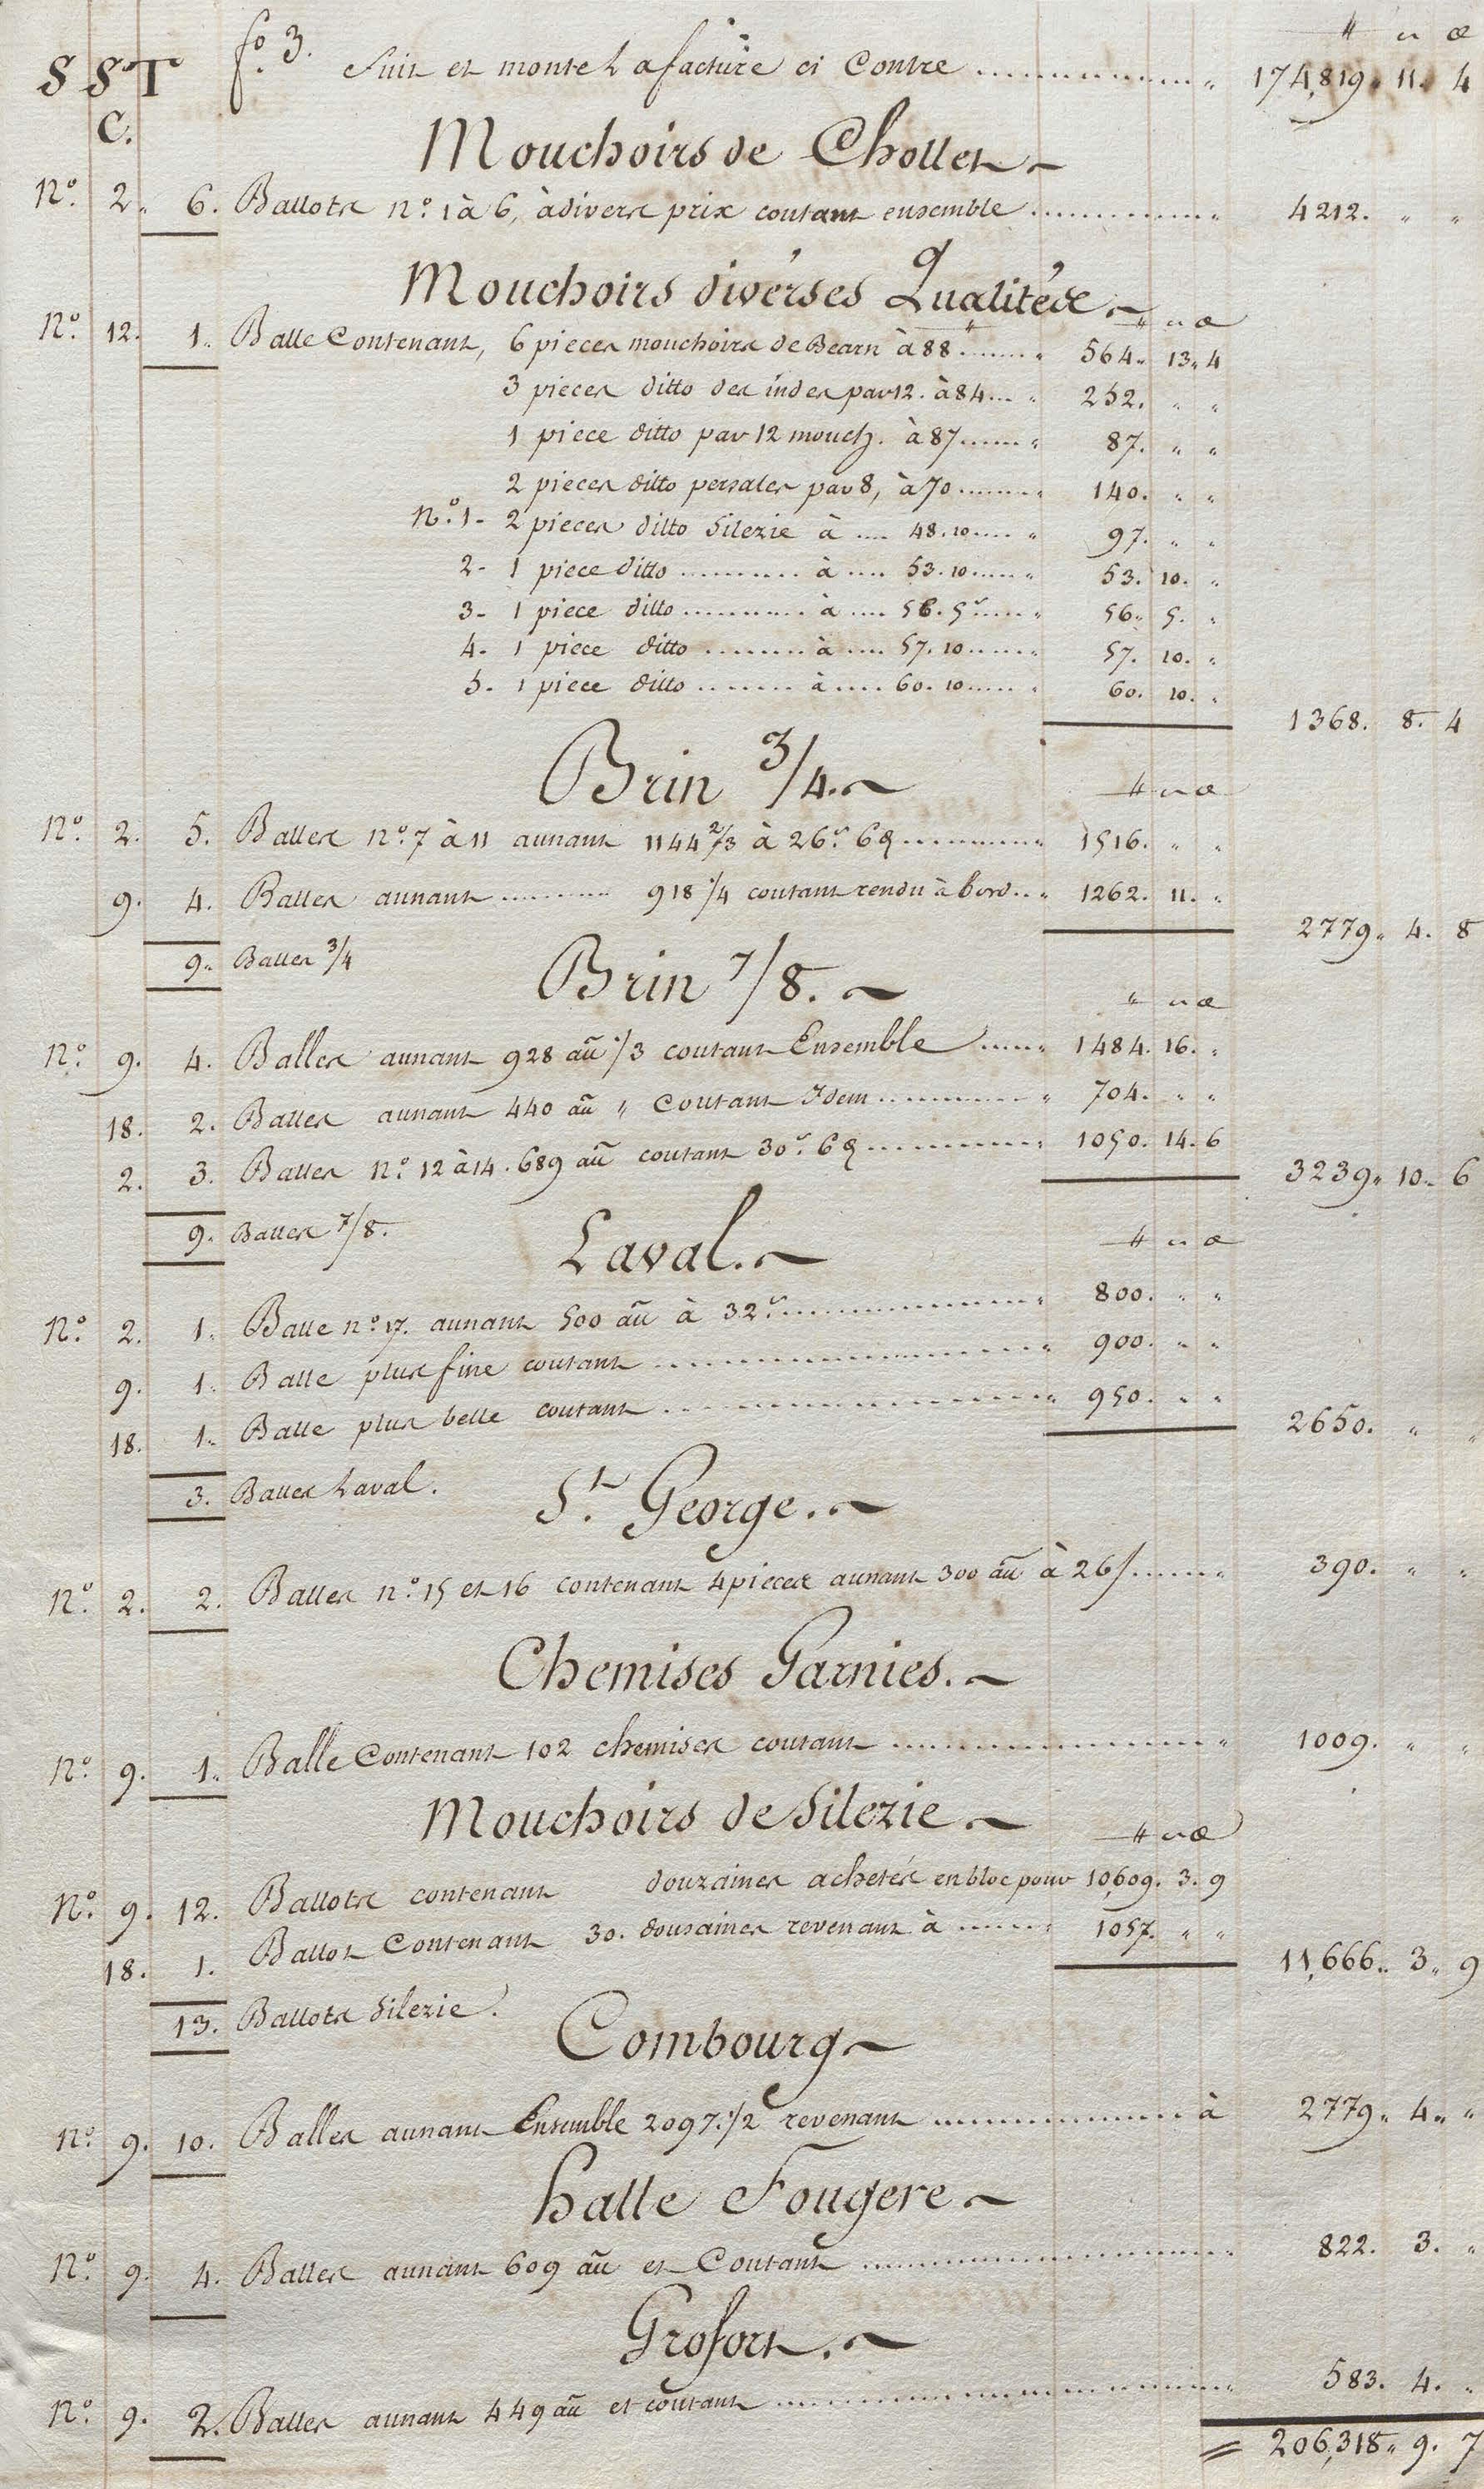 ₶ s ₰
SST fo. 3. Suit et monte La facture ci Contre ............ " 174,819. 11. 4
C.
Mouchoirs de Chollet
No. 2. 6. Ballots no. 1 à 6, à divers prix coutant ensemble ............ " 4212. " "
Mouchoirs diverses Qualités
₶ s ₰
No. 12. 1. Balle Contenant, 6 pieces mouchoirs de Bearn à 88₶ ...... " 564. 13. 4
3 pieces ditto des indes par 12. à 84 ... " 252. " "
1 piece ditto par 12 mouch. à 87 ...... " 87. " "
2 pieces ditto persales par 8, à 70 ...... " 140. " "
No. 1 - 2 pieces ditto Silezie à .... 48. 10 .... " 97. " "
2 - 1 piece ditto .......... à .... 53. 10 ..... " 53. 10. "
3 - 1 piece ditto .......... à .... 56. 5s .... " 56. 5. "
4 - 1 piece ditto ......... à .... 57. 10 ..... " 57. 10. "
5 - 1 piece ditto ........ à .... 60. 10 ..... " 60. 10. "
1368. 8. 4
Brin 3/4.
₶ s ₰
No. 2. 5. Balles no. 7 à 11 aunant 1144 2/3 à 26s 6₰ .......... " 1516. " "
9. 4. Balles aunant ......... 918 1/4 coutant rendu à bord .. " 1262. 11. "
2779. 4. 8
9. Balles 3/4
Brin 7/8.
" s ₰
No. 9. 4. Balles aunant 928 au 1/3 coutant Ensemble ..... " 1484. 16. "
18. 2. Balles aunant 440 au " coutant Idem ............ " 704. " "
2. 3. Balles no. 12 à 14. 689 au coutant 30s 6₰ ............ " 1050. 14. 6
3239. 10. 6
9. Balles 7/8.
Laval.
₶ s ₰
No. 2. 1. Balle no. 17. aunant 500 au à 32s ................ " 800. " "
9. 1. Balle plus fine coutant ........................ " 900. " "
18. 1. Balle plus belle coutant ........................ " 950. " "
2650. " "
3. Balles Laval.
St. George.
No. 2. 2. Balles no. 15 et 16 contenant 4 pieces aunant 300 au à 26/ ...... " 390. " "
Chemises Garnies.
No. 9. 1. Balle Contenant 102 chemises coutant .................... " 1009. " "
Mouchoirs de Silezie
₶ s ₰
No. 9. 12. Ballots contenant douzaines achetés en bloc pour 10,609. 3. 9
18. 1. Ballot Contenant 30. douzaines revenant à ...... " 1057. " "
11,666. 3. 9
13. Ballots Silezie.
Combourg
No. 9. 10. Balles aunant Ensemble 2097. 1/2 revenant ................ à 2779. 4. "
halle Fougere
No. 9. 4. Balles aunant 609 au et Coutant ........................ " 822. 3. "
Grofort.
No. 9. 2. Balles aunant 449 au et coutant ........................ " 583. 4. "
= 206,318. 9. 7